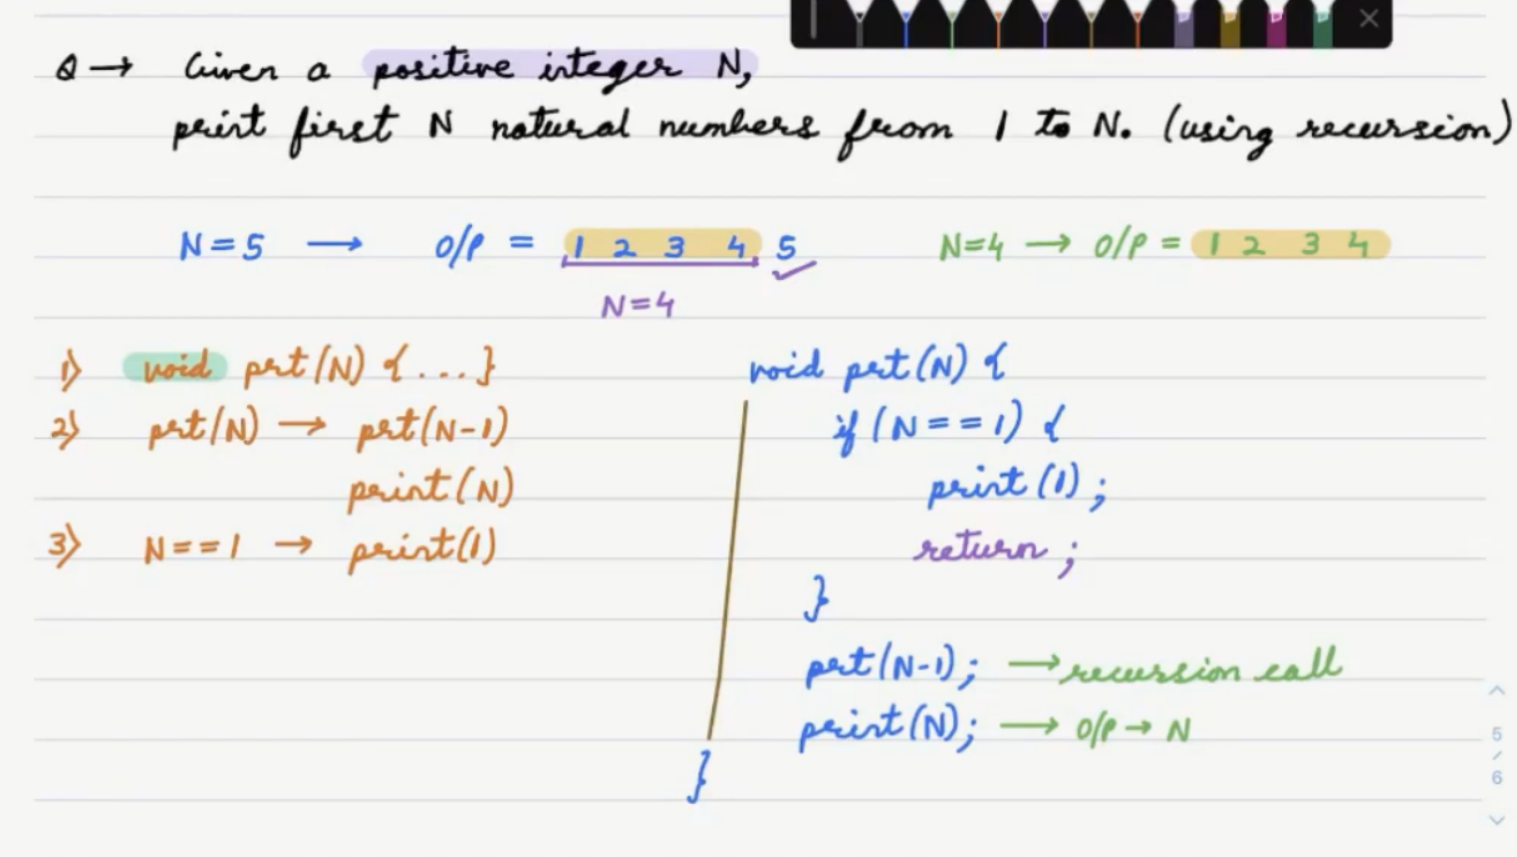 Q → Given a positive integer N,
print first N natural numbers from 1 to N. (using recursion)
N = 5 → O/P = 1 2 3 4 5
N=4 → O/P = 1 2 3 4
N=4
1) void prt(N) { ... }
2) prt(N) → prt(N-1)
print(N)
3) N==1 → print(1)
void prt(N) {
if (N == 1) {
print (1) ;
return ;
}
prt(N-1); → recursion call
print(N); → O/P → N
}
5
/
6